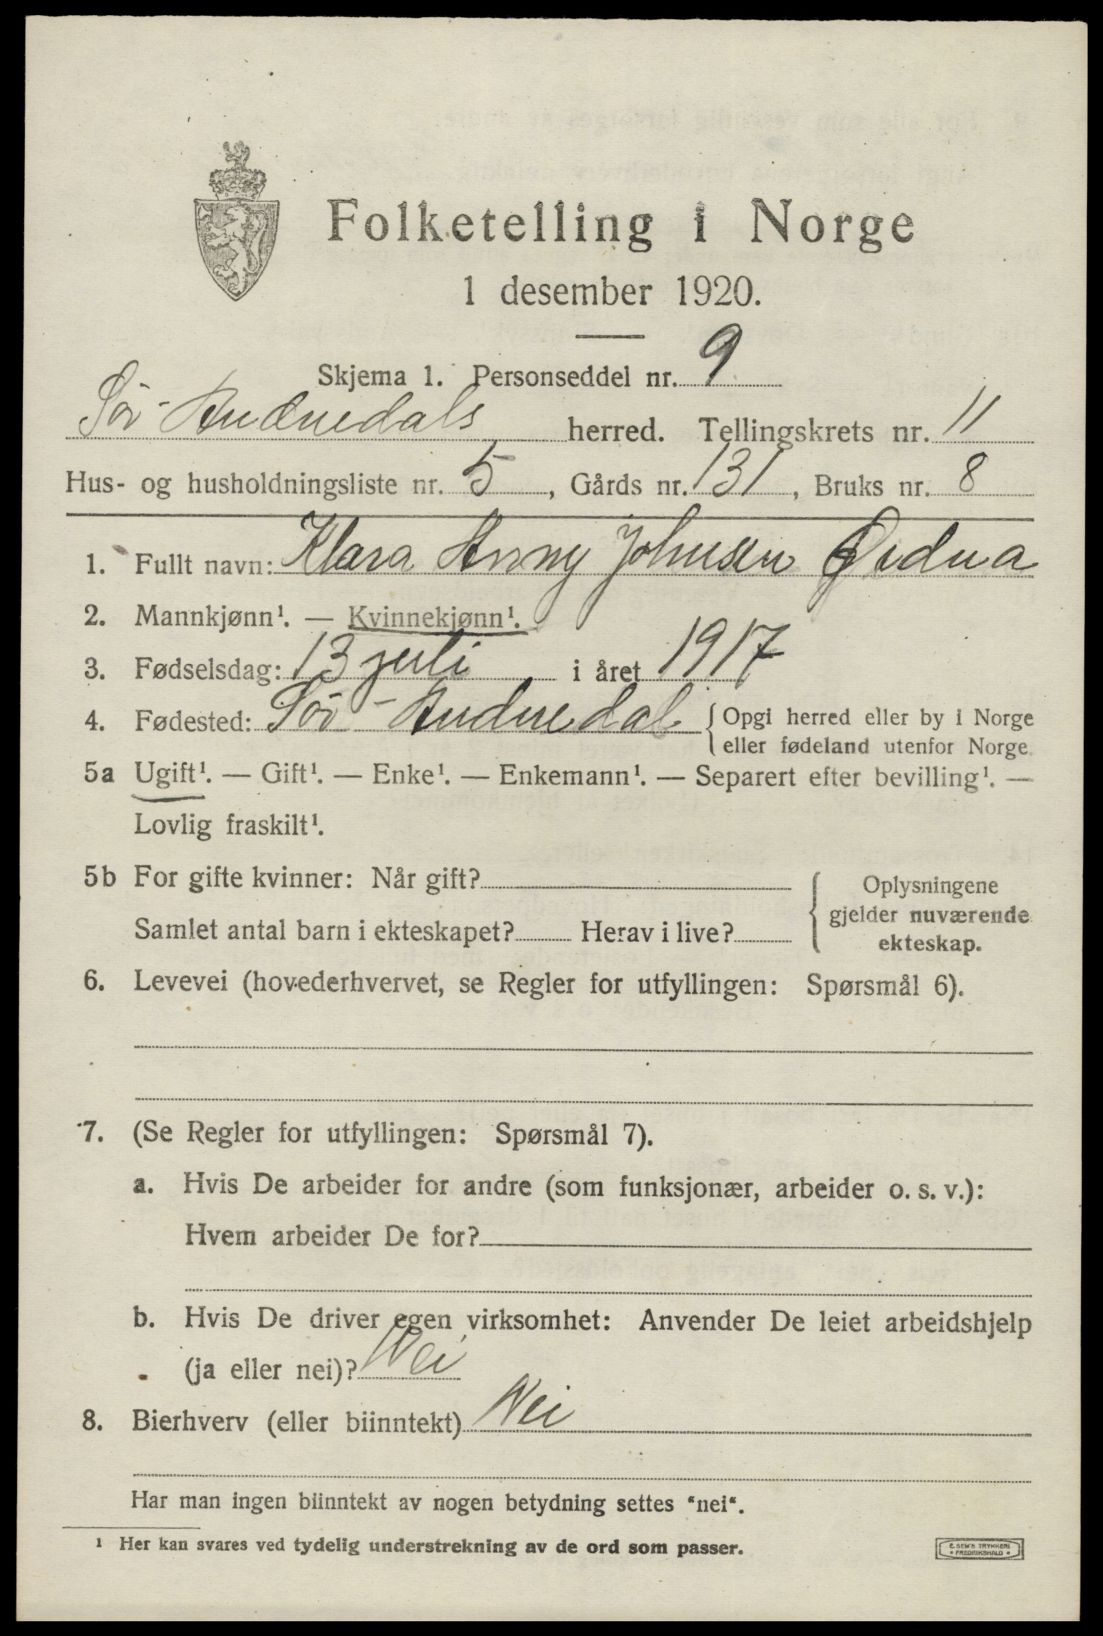 Folketelling i Norge
1 desember 1920.
Skjema 1. Personseddel nr. 9
Sør-Audnedals herred. Tellingskrets nr. 11
Hus- og husholdningsliste nr. 5, Gårds nr. 131, Bruks nr. 8
1. Fullt navn: Klara Anny Johnsen Øidna
2. Mannkjønn¹. — Kvinnekjønn¹.
3. Fødselsdag: 13 juli i året 1917
4. Fødested: Sør-Audnedal { Opgi herred eller by i Norge
eller fødeland utenfor Norge.
5a Ugift¹. — Gift¹. — Enke¹. — Enkemann¹. — Separert efter bevilling¹. —
Lovlig fraskilt¹.
5b For gifte kvinner: Når gift?
Samlet antal barn i ekteskapet? Herav i live?
{ Oplysningene
gjelder nuværende
ekteskap.
6. Levevei (hovederhvervet, se Regler for utfyllingen: Spørsmål 6).
7. (Se Regler for utfyllingen: Spørsmål 7).
a. Hvis De arbeider for andre (som funksjonær, arbeider o. s. v.):
Hvem arbeider De for?
b. Hvis De driver egen virksomhet: Anvender De leiet arbeidshjelp
(ja eller nei)? Nei
8. Bierhverv (eller biinntekt) Nei
Har man ingen biinntekt av nogen betydning settes "nei".
¹ Her kan svares ved tydelig understrekning av de ord som passer.
E. SEM'S TRYKKERI
• FREDRIKSHALD •